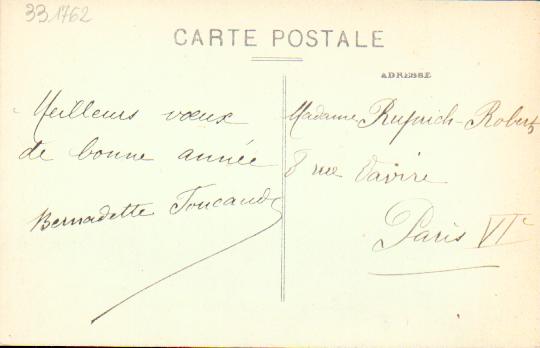 331762
CARTE POSTALE
ADRESSE
Meilleurs vœux
de bonne année
Bernadette Toucaud
Madame Ruprich-Robert
8 rue Vavire
Paris VIe